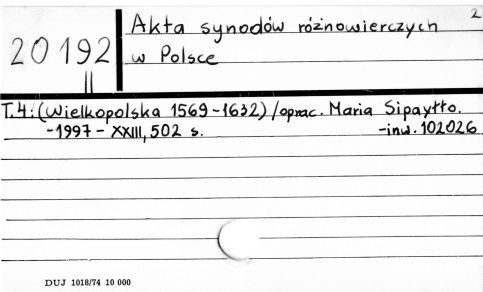 2
Akta synodów różnowierczych
20192 w Polsce
II
T.4: (Wielkopolska 1569-1632) / oprac. Maria Sipayłło.
-1997 - XXIII, 502 s. -inw. 102026
DUJ 1018/74 10 000